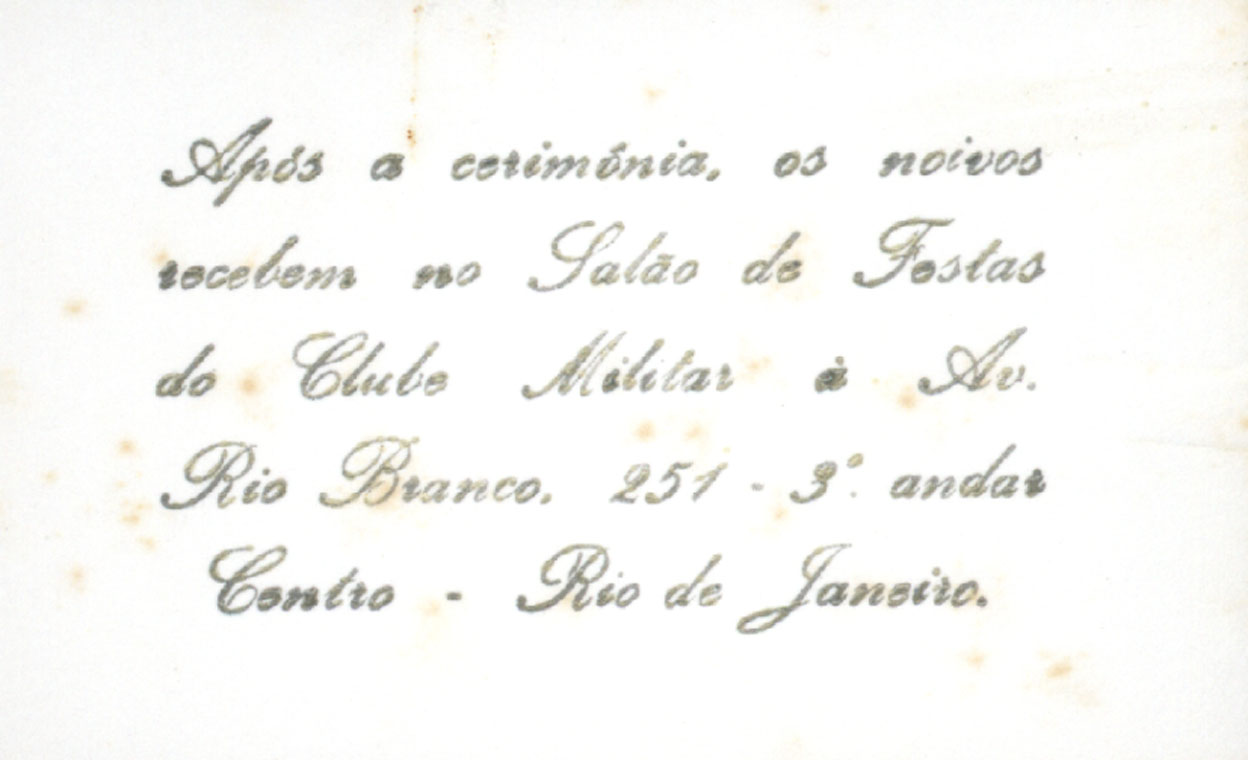 Após a cerimônia, os noivos
recebem no Salão de Festas
do Clube Militar à Av.
Rio Branco, 251 - 3º. andar
Centro - Rio de Janeiro.